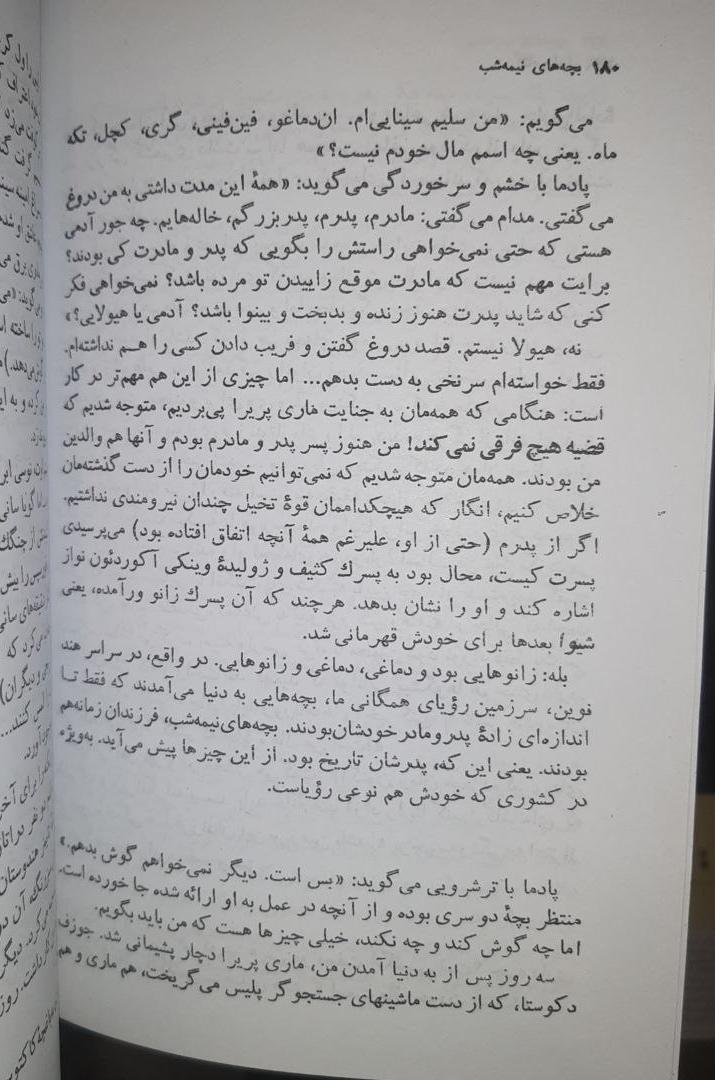 ۱۸۰ بچه‌های نیمه‌شب
می‌گویم: «من سلیم سینایی‌ام. ان‌دماغو، فین‌فینی، گری، کچل، تکه
ماه. یعنی چه اسمم مال خودم نیست؟»
پادما با خشم و سرخوردگی می‌گوید: «همهٔ این مدت داشتی به من دروغ
می‌گفتی. مدام می‌گفتی: مادرم، پدرم، پدربزرگم، خاله‌هایم. چه جور آدمی
هستی که حتی نمی‌خواهی راستش را بگویی که پدر و مادرت کی بودند؟
برایت مهم نیست که مادرت موقع زاییدن تو مرده باشد؟ نمی‌خواهی فکر
کنی که شاید پدرت هنوز زنده و بدبخت و بینوا باشد؟ آدمی یا هیولایی؟»
نه، هیولا نیستم. قصد دروغ گفتن و فریب دادن کسی را هم نداشته‌ام.
فقط خواسته‌ام سرنخی به دست بدهم... اما چیزی از این هم مهم‌تر در کار
است: هنگامی که همه‌مان به جنایت ماری پریرا پی‌بردیم، متوجه شدیم که
قضیه هیچ فرقی نمی‌کند! من هنوز پسر پدر و مادرم بودم و آنها هم والدین
من بودند. همه‌مان متوجه شدیم که نمی‌توانیم خودمان را از دست گذشته‌مان
خلاص کنیم، انگار که هیچکداممان قوهٔ تخیل چندان نیرومندی نداشتیم.
اگر از پدرم (حتی از او، علیرغم همهٔ آنچه اتفاق افتاده بود) می‌پرسیدی
پسرت کیست، محال بود به پسرك کثیف و ژولیدهٔ وینکی آکوردئون نواز
اشاره کند و او را نشان بدهد. هرچند که آن پسرك زانو ورآمده، یعنی
شیوا بعدها برای خودش قهرمانی شد.
بله: زانوهایی بود و دماغی، دماغی و زانوهایی. در واقع، در سراسر هند
نوین، سرزمین رؤیای همگانی ما، بچه‌هایی به دنیا می‌آمدند که فقط تا
اندازه‌ای زادهٔ پدرومادر خودشان‌بودند. بچه‌های‌نیمه‌شب، فرزندان زمانه‌هم
بودند. یعنی این که، پدرشان تاریخ بود. از این چیزها پیش می‌آید. به‌ویژه
در کشوری که خودش هم نوعی رؤیاست.
پادما با ترشرویی می‌گوید: «بس است. دیگر نمی‌خواهم گوش بدهم.»
منتظر بچهٔ دو سری بوده و از آنچه در عمل به او ارائه شده جا خورده است.
اما چه گوش کند و چه نکند، خیلی چیزها هست که من باید بگویم.
سه روز پس از به دنیا آمدن من، ماری پریرا دچار پشیمانی شد. جوزف
دکوستا، که از دست ماشینهای جستجو گر پلیس می‌گریخت، هم ماری و هم